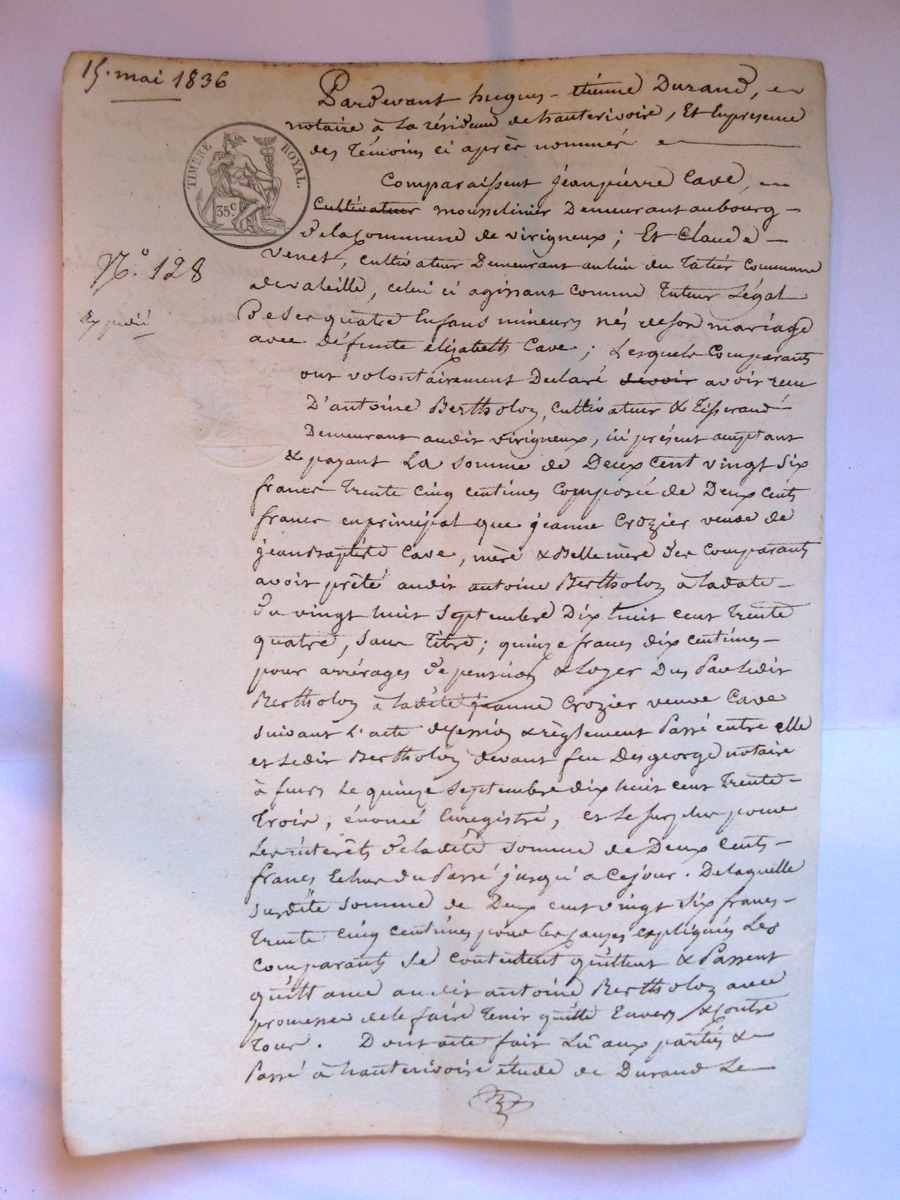 15. mai 1836
Pardevant hugues-étienne Durand,
notaire à la résidence de hauterivoire, Et En présence
des Témoins ci après nommés
TIMBRE ROYAL.
35c.
Comparaissent jean pierre Cave,
Cultivateur mousselinier Demeurant au bourg
de la Commune de virigneux; Et Claude
Venet, cultivateur Demeurant au lieu du Tatier Commune
de valeille, celui ci agissant comme Tuteur Légal
N.o 128
De Ses quatre Enfans mineurs nés de son mariage
Expédié
avec Défunte élizabeth Cave; Lesquels Comparants
ont volontairement Déclaré devoir avoir reçu
D'antoine Bertholon, Cultivateur & Tisserand
Demeurant audit virigneux, ici présent acceptant
& payant La somme de Deux cent vingt six
francs Trente cinq centimes Composée de Deux cents
francs en principal que jeanne Crozier veuve de
jean Baptiste Cave, mère & Belle mère des Comparants
avoir prêté audit antoine Bertholon à la date
du vingt huit Septembre Dix huit cent Trente
quatre, sans Titre; quinze francs dix centimes
pour arrérages de pension & Loyer Dus Par Ledit
Bertholon à ladite jeanne Crozier veuve Cave
suivant L'acte de cession & règlement Passé entre elle
et Ledit Bertholon devant feu Desgeorge notaire
à feurs Le quinze Septembre dix huit cent Trente-
Trois, énoncé Enregistré, et Le Surplus pour
Les intérêts de ladite somme de Deux cents
francs Echus du Passé jusqu'à ce jour. De laquelle
susdite somme de Deux cent vingt Six francs
Trente cinq centimes pour les causes expliquées Les
Comparants se contentent quittent & Passent
quittance audit antoine Bertholon avec
promesse de le faire Tenir quitte Envers & Contre
Tous. Dont acte fait Lû aux parties &
Passé à hauterivoire étude de Durand Le